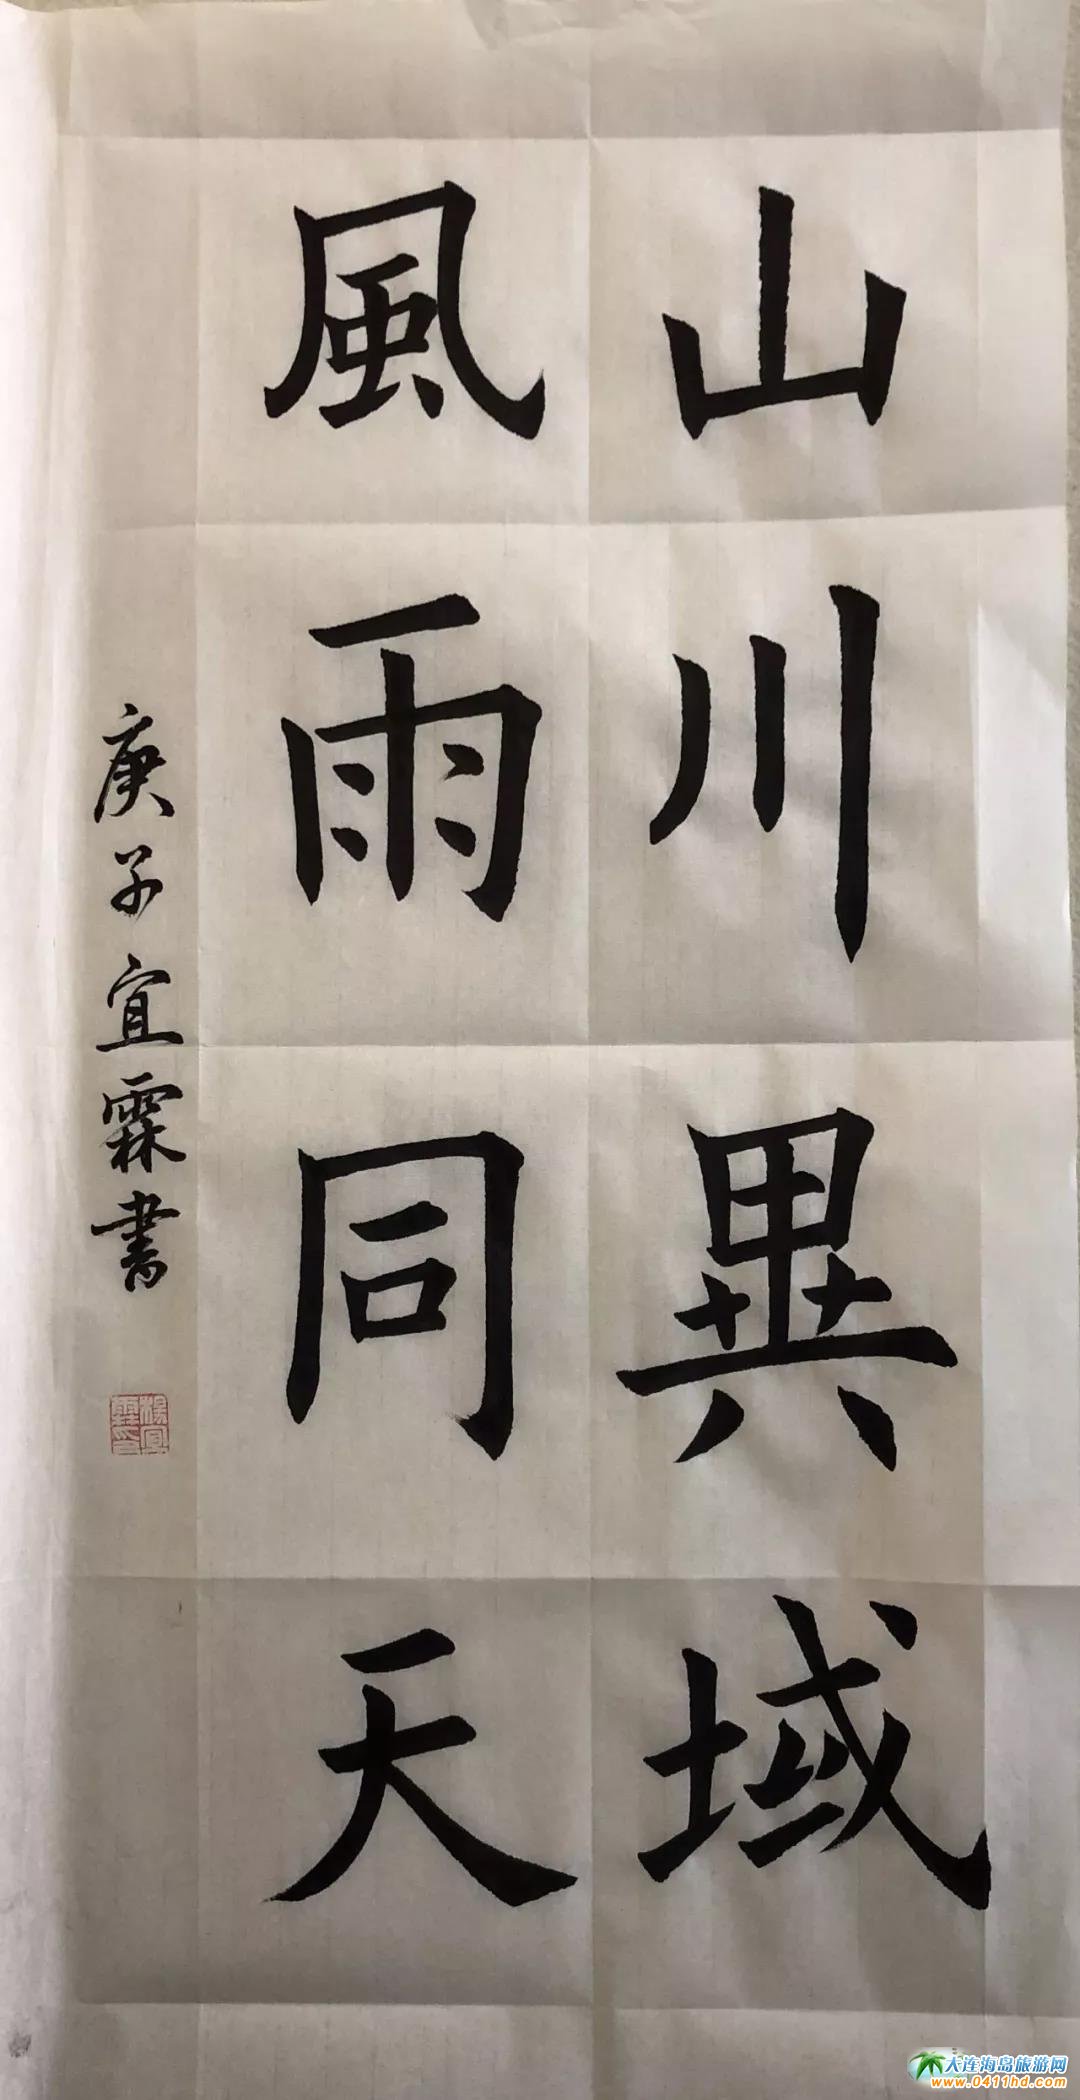 山川異域
風雨同天
庚子宜霖書
大连海岛旅游网
www.0411hd.com